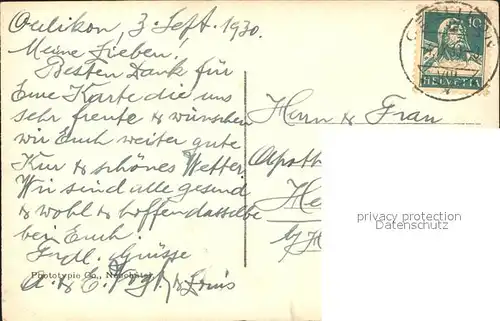 Oerlikon, 3. Sept. 1930.
Meine Lieben!
Besten Dank für
Eure Karte die uns
sehr freute & wünschen
wir Euch weiter gute
Kur & schönes Wetter
Wir sind alle gesund
& wohl & hoffen dasselbe
bei Euch.
Frdl. Grüsse
A. & E. Vogt & Louis
Phototypie Co., Neuchâtel
10
HELVETIA
VIII
Herrn & Frau
privacy protection
Datenschutz